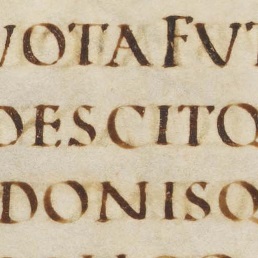 VOTAFUT
DESCITO
DONISQ